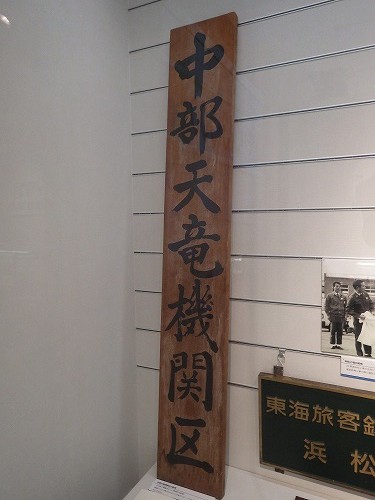 中部天竜機関区
東海旅客鉄
浜松